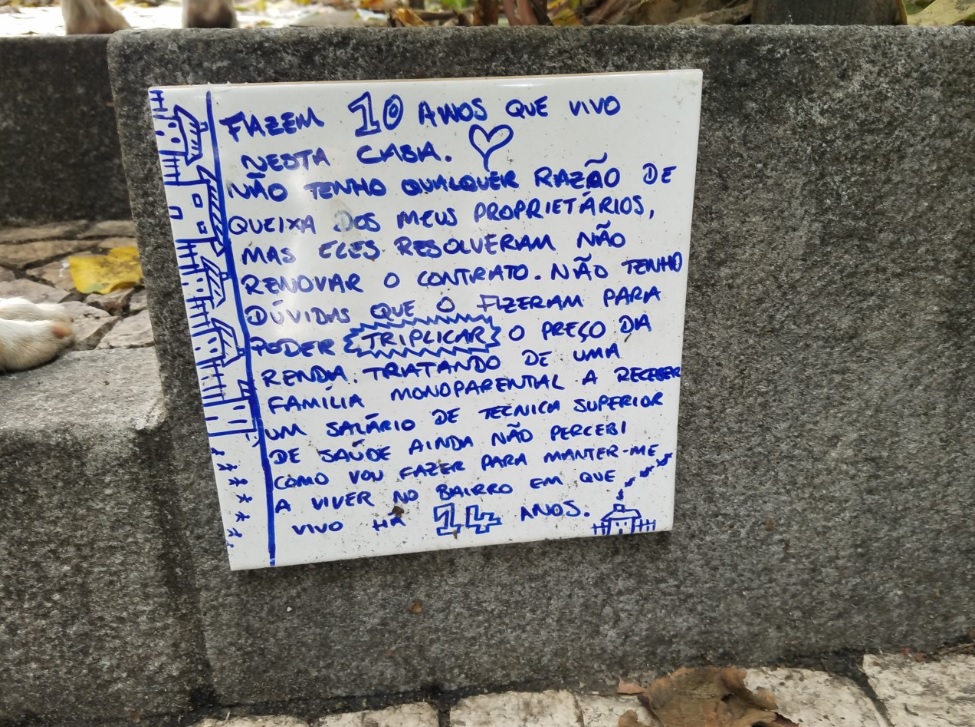 FAZEM 10 ANOS QUE VIVO
NESTA CASA.
NÃO TENHO QUALQUER RAZÃO DE
QUEIXA DOS MEUS PROPRIETÁRIOS,
MAS ELES RESOLVERAM NÃO
RENOVAR O CONTRATO. NÃO TENHO
DÚVIDAS QUE O FIZERAM PARA
PODER TRIPLICAR O PREÇO DA
RENDA. TRATANDO DE UMA
FAMÍLIA MONOPARENTAL A RECEBER
UM SALÁRIO DE TECNICA SUPERIOR
DE SAÚDE AINDA NÃO PERCEBI
COMO VOU FAZER PARA MANTER-ME
A VIVER NO BAIRRO EM QUE
VIVO HÁ 14 ANOS.